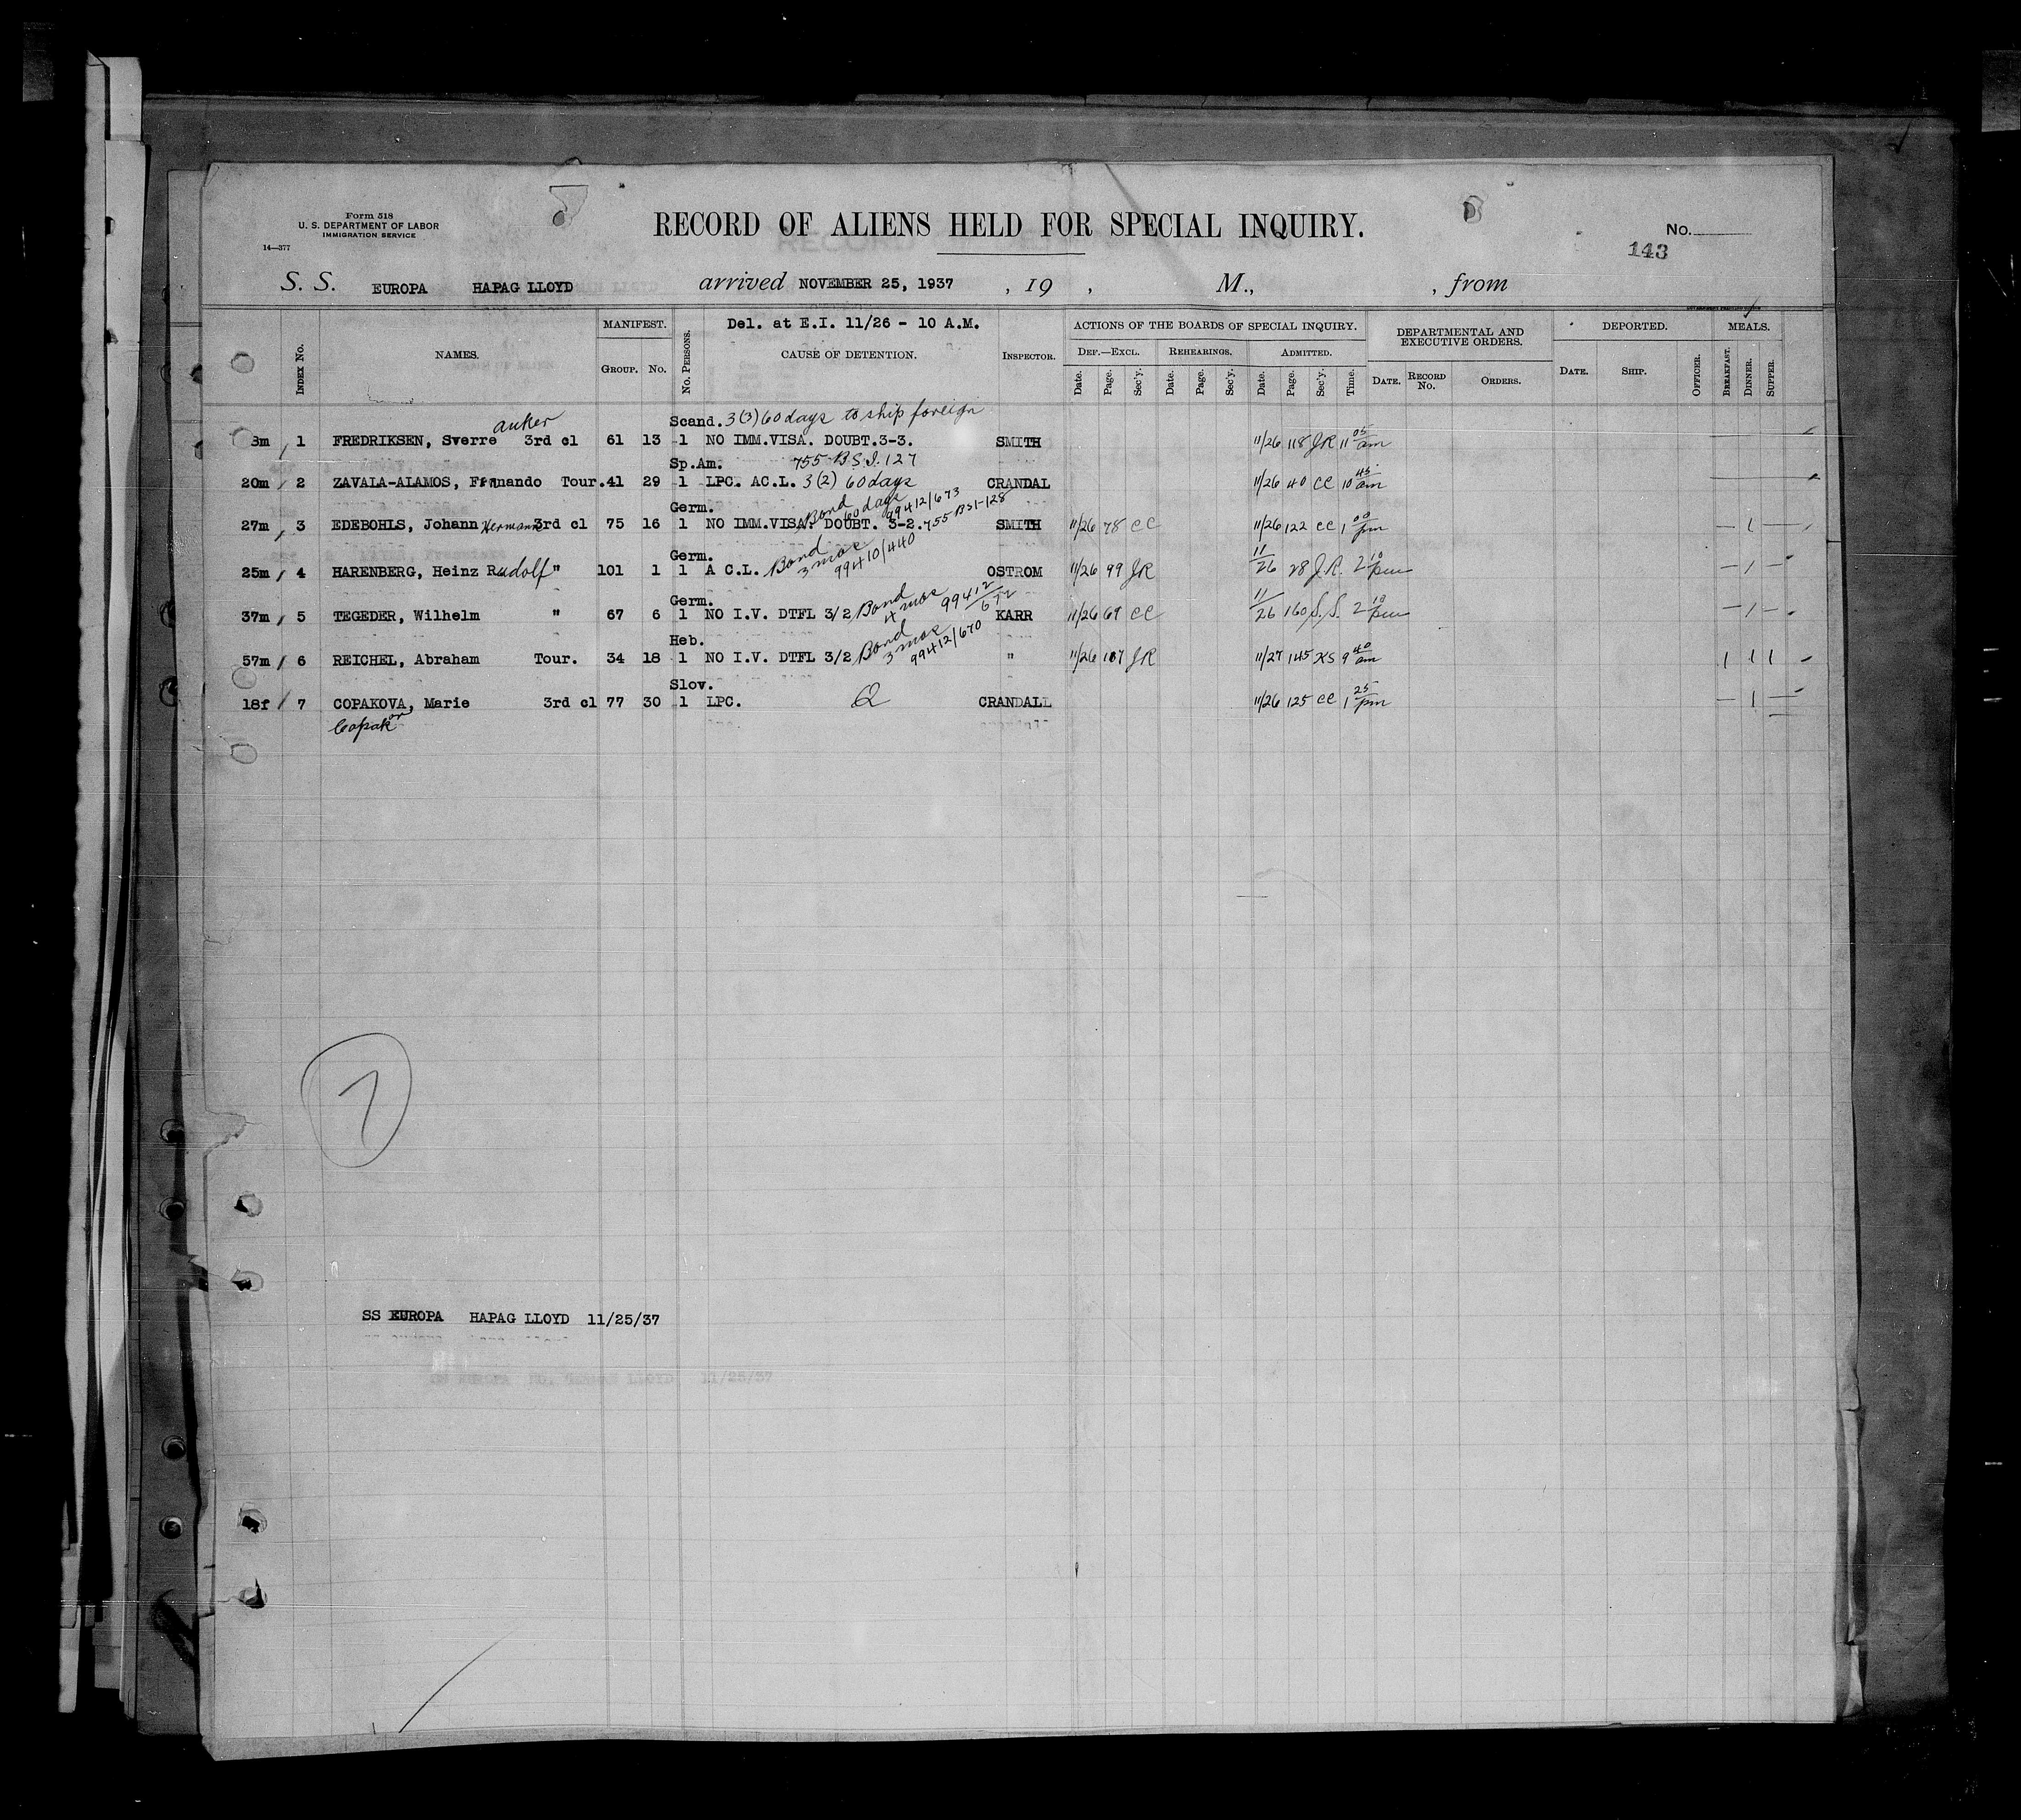 Form 518
U. S. DEPARTMENT OF LABOR
IMMIGRATION SERVICE
14—377
RECORD OF ALIENS HELD FOR SPECIAL INQUIRY.
No.
143
S. S. EUROPA HAPAG LLOYD arrived NOVEMBER 25, 1937 , 19 , M., , from
Del. at E.I. 11/26 - 10 A.M.
INDEX No. NAMES. MANIFEST. GROUP. No. No. PERSONS. CAUSE OF DETENTION. INSPECTOR. ACTIONS OF THE BOARDS OF SPECIAL INQUIRY. DEPARTMENTAL AND EXECUTIVE ORDERS. DEPORTED. MEALS.
DEF.—EXCL. REHEARINGS. ADMITTED.
Date. Page. Sec'y. Date. Page. Sec'y. Date. Page. Sec'y. Time. DATE. RECORD No. ORDERS. DATE. SHIP. OFFICER. BREAKFAST. DINNER. SUPPER.
anker Scand. 3(3) 60 days to ship foreign
3m 1 FREDRIKSEN, Sverre 3rd cl 61 13 1 NO IMM.VISA. DOUBT.3-3. SMITH 11/26 118 JR 11 05 am
Sp.Am. 755 B.S.I. 127
20m 2 ZAVALA-ALAMOS, Fernando Tour. 41 29 1 LPC. AC.L. 3(2) 60 days CRANDAL 11/26 40 CC 10 45 am
Germ. Bond 60 days 99412/673
27m 3 EDEBOHLS, Johann Hermann 3rd cl 75 16 1 NO IMM.VISA. DOUBT. 3-2. 755 BSI-128 SMITH 11/26 78 CC 11/26 122 CC 1 00 pm
Germ. Bond 3 mos 99410/440
25m 4 HARENBERG, Heinz Rudolf " 101 1 1 A C.L. OSTROM 11/26 99 JR 11/26 28 J.R. 2 10 pm
Germ. Bond 4 mos 99412/672
37m 5 TEGEDER, Wilhelm " 67 6 1 NO I.V. DTFL 3/2 KARR 11/26 69 CC 11/26 160 S.S. 2 10 pm
Heb. Bond 3 mos 99412/670
57m 6 REICHEL, Abraham Tour. 34 18 1 NO I.V. DTFL 3/2 " 11/26 107 JR 11/27 145 KS 9 40 am
Slov.
18f 7 COPAKOVA, Marie 3rd cl 77 30 1 LPC. CRANDALL 11/26 125 CC 1 25 pm
Copak or
7
SS EUROPA HAPAG LLOYD 11/25/37